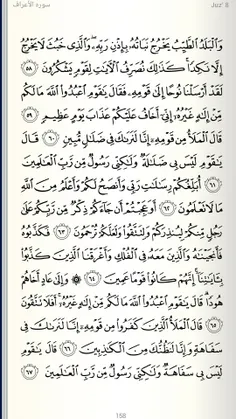 سورة الأعراف Juz' 8
وَٱلْبَلَدُ ٱلطَّيِّبُ يَخْرُجُ نَبَاتُهُۥ بِإِذْنِ رَبِّهِۦ ۖ وَٱلَّذِى خَبُثَ لَا يَخْرُجُ
إِلَّا نَكِدًا ۚ كَذَٰلِكَ نُصَرِّفُ ٱلْـَٔايَٰتِ لِقَوْمٍ يَشْكُرُونَ ٥٨
لَقَدْ أَرْسَلْنَا نُوحًا إِلَىٰ قَوْمِهِۦ فَقَالَ يَٰقَوْمِ ٱعْبُدُوا۟ ٱللَّهَ مَا لَكُم
مِّنْ إِلَٰهٍ غَيْرُهُۥٓ إِنِّىٓ أَخَافُ عَلَيْكُمْ عَذَابَ يَوْمٍ عَظِيمٍ ٥٩
قَالَ ٱلْمَلَأُ مِن قَوْمِهِۦٓ إِنَّا لَنَرَىٰكَ فِى ضَلَٰلٍ مُّبِينٍ ٦٠ قَالَ
يَٰقَوْمِ لَيْسَ بِى ضَلَٰلَةٌ وَلَٰكِنِّى رَسُولٌ مِّن رَّبِّ ٱلْعَٰلَمِينَ
٦١ أُبَلِّغُكُمْ رِسَٰلَٰتِ رَبِّى وَأَنصَحُ لَكُمْ وَأَعْلَمُ مِنَ ٱللَّهِ
مَا لَا تَعْلَمُونَ ٦٢ أَوَعَجِبْتُمْ أَن جَآءَكُمْ ذِكْرٌ مِّن رَّبِّكُمْ عَلَىٰ
رَجُلٍ مِّنكُمْ لِيُنذِرَكُمْ وَلِتَتَّقُوا۟ وَلَعَلَّكُمْ تُرْحَمُونَ ٦٣ فَكَذَّبُوهُ
فَأَنجَيْنَٰهُ وَٱلَّذِينَ مَعَهُۥ فِى ٱلْفُلْكِ وَأَغْرَقْنَا ٱلَّذِينَ كَذَّبُوا۟
بِـَٔايَٰتِنَآ ۚ إِنَّهُمْ كَانُوا۟ قَوْمًا عَمِينَ ٦٤ ۞ وَإِلَىٰ عَادٍ أَخَاهُمْ
هُودًا ۗ قَالَ يَٰقَوْمِ ٱعْبُدُوا۟ ٱللَّهَ مَا لَكُم مِّنْ إِلَٰهٍ غَيْرُهُۥٓ ۚ أَفَلَا تَتَّقُونَ
٦٥ قَالَ ٱلْمَلَأُ ٱلَّذِينَ كَفَرُوا۟ مِن قَوْمِهِۦٓ إِنَّا لَنَرَىٰكَ فِى
سَفَاهَةٍ وَإِنَّا لَنَظُنُّكَ مِنَ ٱلْكَٰذِبِينَ ٦٦ قَالَ يَٰقَوْمِ
لَيْسَ بِى سَفَاهَةٌ وَلَٰكِنِّى رَسُولٌ مِّن رَّبِّ ٱلْعَٰلَمِينَ ٦٧
158